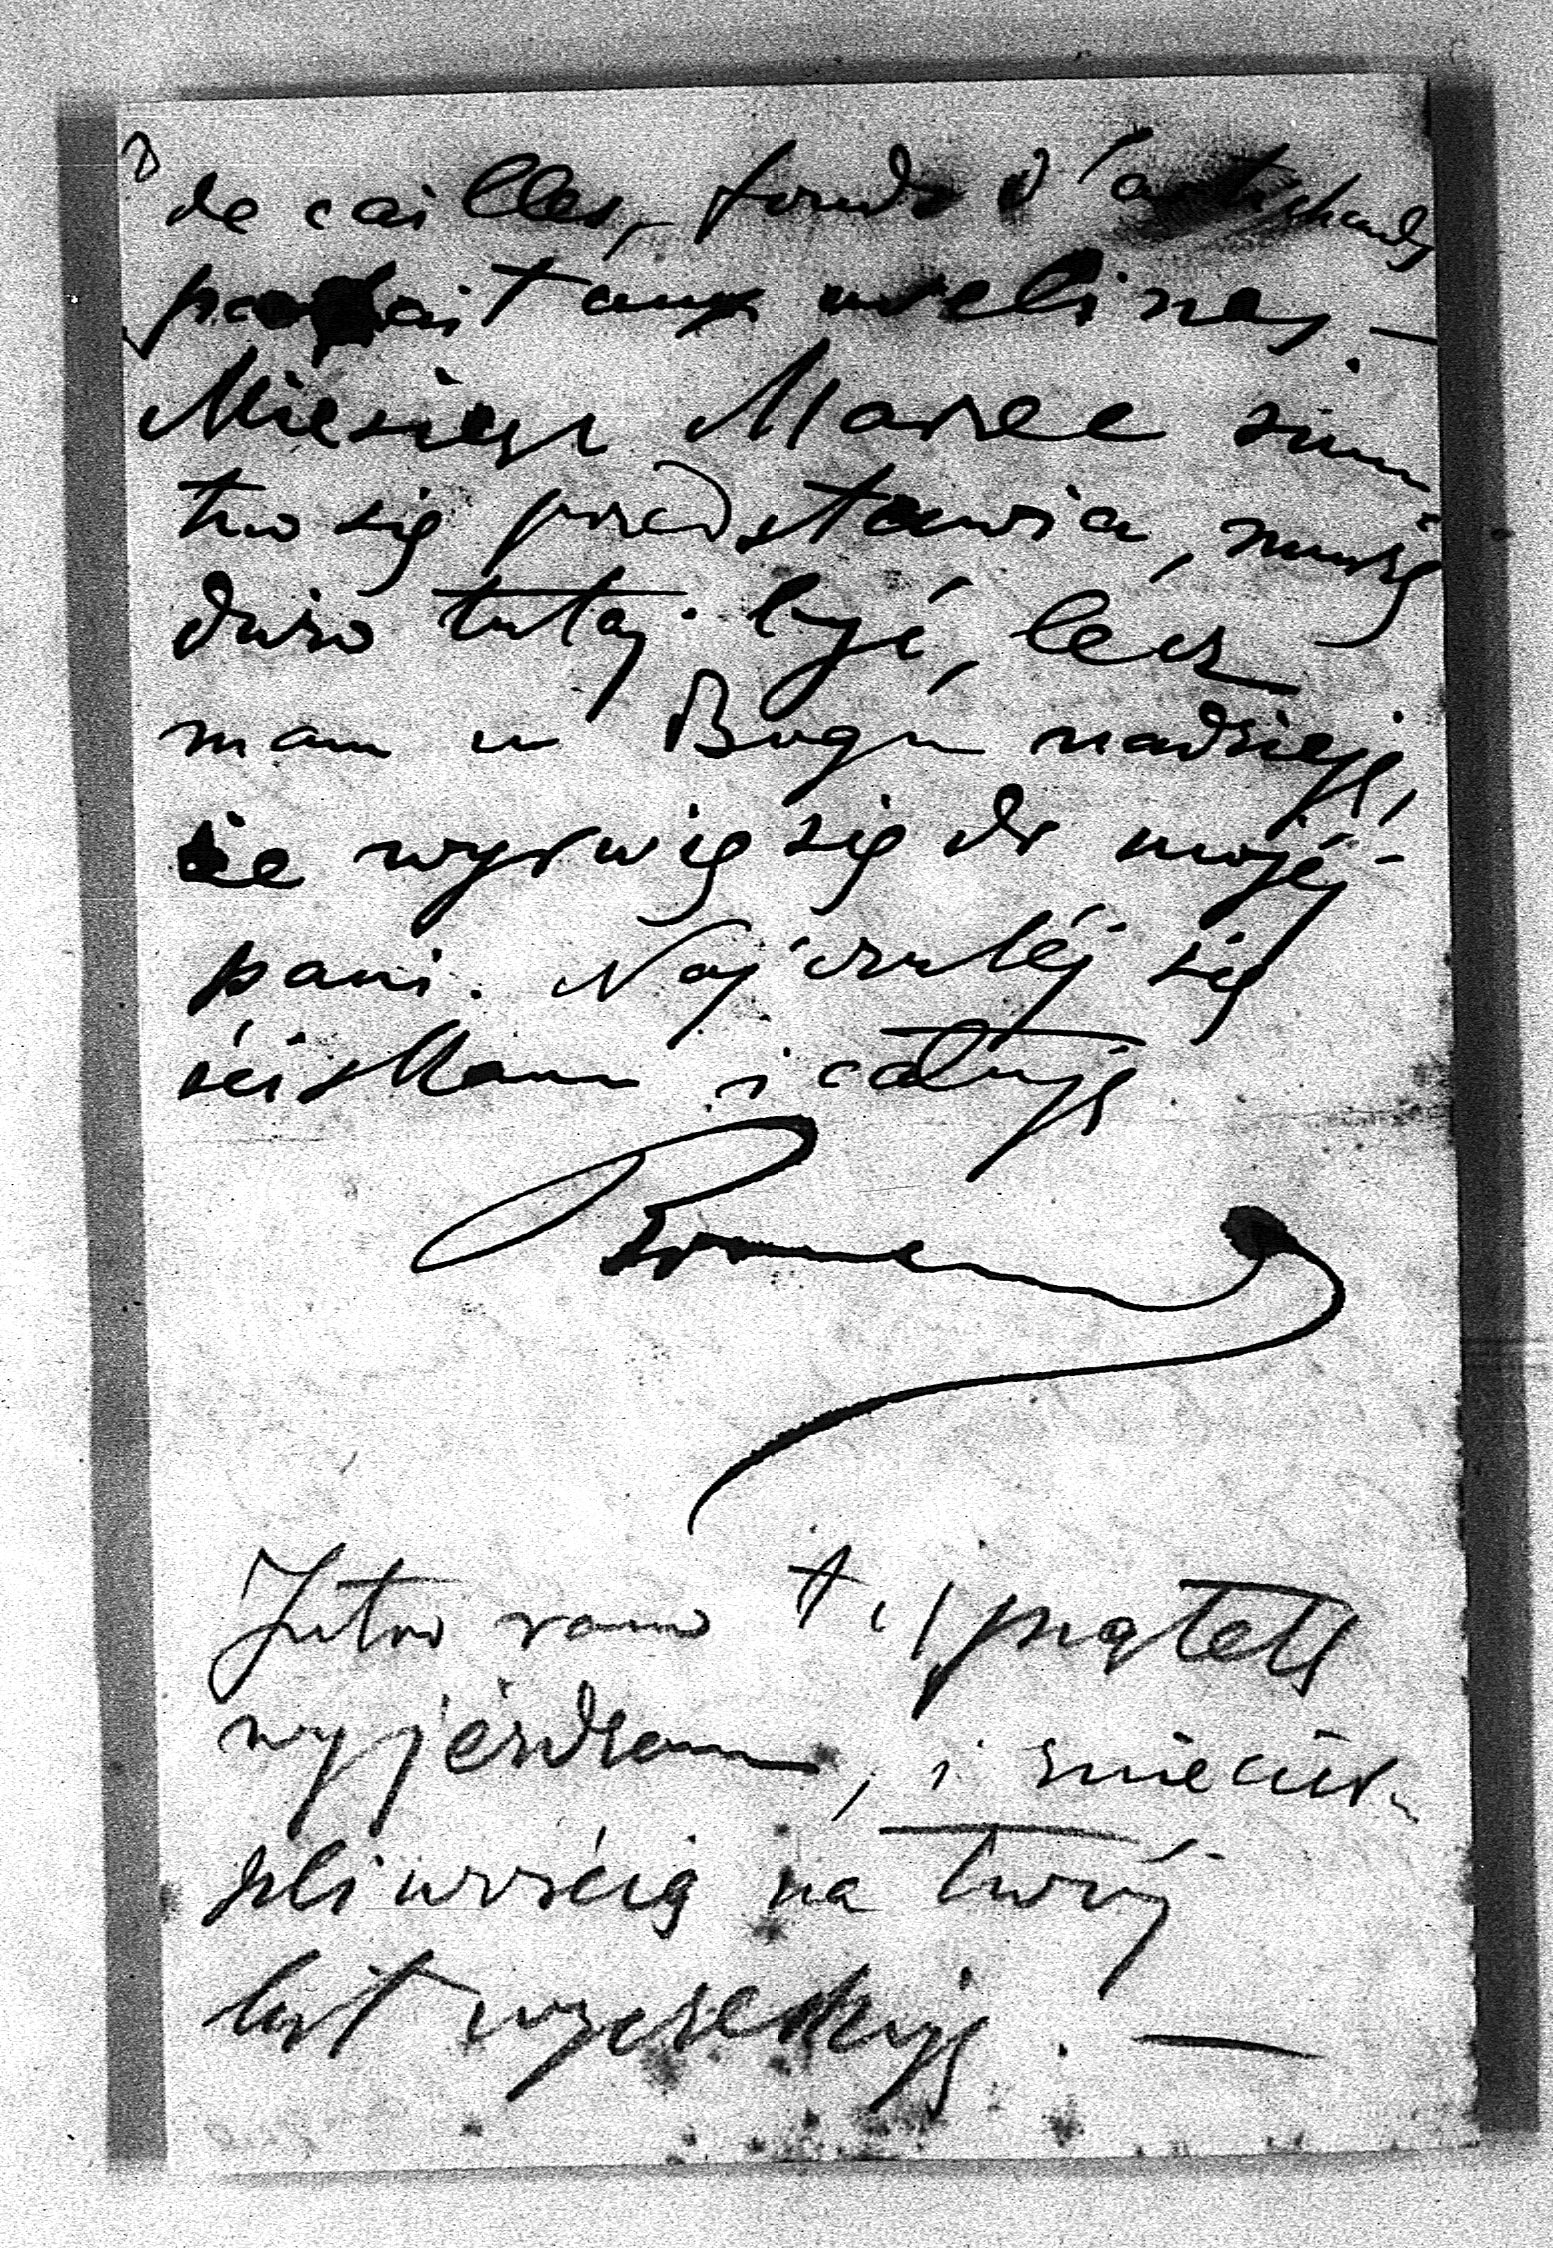 de cailles, fonds d'artichauds
parfait aux avelines. —
Miesiąc Marzec smu
tno się przedstawia, muszę
dużo tutaj być, lecz
mam w Bogu nadzieję,
że wyrwię się do mojéj
pani. Najczuléj się
ściskam i całuję
Roman
Jutro rano t. j. piątek
wyjeżdżam, i z niecier-
pliwością na twój
list wyczekuję. —